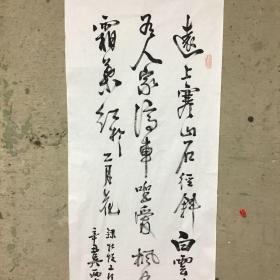 遠上寒山石徑斜白雲
有人家停車坐愛楓
霜葉紅於二月花
辛丑